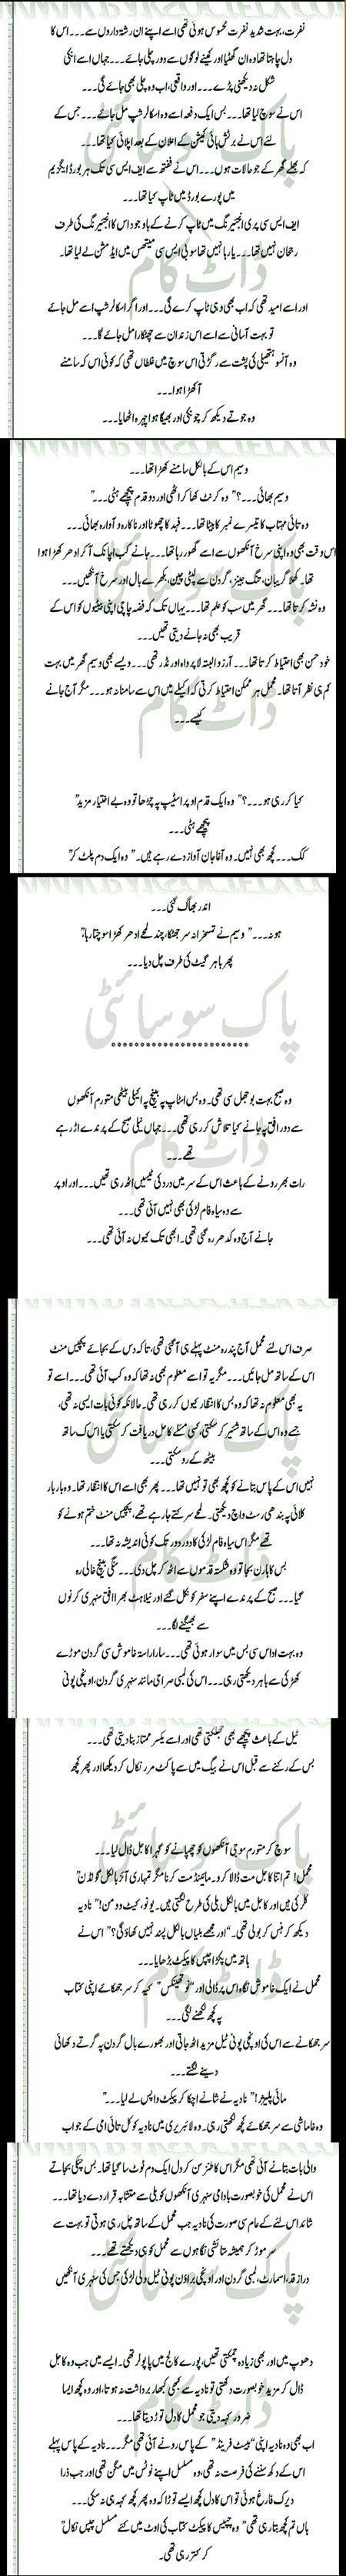 نفرت، بہت شدید نفرت محسوس ہوئی تھی اسے اپنے ان رشتہ داروں سے۔۔۔ اس کا
دل چاہتا تھا وہ ان گھٹیا اور کمینے لوگوں سے دور چلی جائے۔۔۔ جہاں اسے انکی
شکل نہ دیکھنی پڑے۔۔۔ اور واقعی، اب وہ چلی بھی جائے گی۔۔۔
اس نے سوچ لیا تھا۔۔۔ بس ایک دفعہ اسے وہ اسکالرشپ مل جائے۔۔۔ جس کے
لئے اس نے برٹش ہائی کمیشن کے اعلان کے بعد اپلائی کیا تھا۔۔۔
کہ بھلے گھر کے جو حالات ہوں۔۔۔ اس نے ففتھ سے ایف ایس سی تک ہر بورڈ ایگزیم
میں پورے بورڈ میں ٹاپ کیا تھا۔۔۔
ایف ایس سی پری انجنیرنگ میں ٹاپ کرنے کے باوجود اس کا انجنیرنگ کی طرف
رجحان نہیں تھا۔۔۔ یا رہا نہیں تھا سو بی ایس سی میتھس میں ایڈمشن لے لیا تھا۔
اور اسے امید تھی کہ اب بھی وہی ٹاپ کرے گی۔۔۔ اور اگر اسکالرشپ اسے مل جائے
تو بہت آسانی سے اسے اس زندان سے چھٹکارا مل جائے گا۔۔۔
وہ آنسو ہتھیلی کی پشت سے رگڑتی اس سوچ میں غلطاں تھی کہ کوئی اس کہ سامنے
آ کھڑا ہوا۔۔۔
وہ جوتے دیکھ کر چونکی اور بھیگا ہوا چہرہ اٹھایا۔۔۔
وسیم اس کے بالکل سامنے کھڑا تھا۔۔۔
وسیم بھائی۔۔۔؟" وہ کرنٹ کھا کر اٹھی اور دو قدم پیچھے ہٹی۔۔۔"
وہ تائی مہتاب کا تیسرے نمبر کا بیٹا تھا۔۔۔ فہد کا چھوٹا اور ناکارہ و آوارہ بھائی۔۔۔
اس وقت بھی وہ اپنی سرخ آنکھوں سے اسے گھور رہا تھا۔۔۔ جانے کب اچانک آ کر ادھر کھڑا ہوا
تھا۔ کھلا گریبان، تنگ جینز، گردن سے لپٹی چین، بکھرے بال اور سرخ آنکھیں۔۔۔
وہ نشہ کرتا تھا۔۔۔ گھر میں سب کو علم تھا۔۔۔ یہاں تک کہ فضہ چاچی اپنی بیٹیوں کو اس کے
قریب بھی نہ جانے دیتی تھیں۔۔۔
خود حسن بھی احتیاط کرتا تھا۔۔۔ آرزو البتہ لاپرواہ اور نڈر تھی۔۔۔ ویسے بھی وسیم گھر میں بہت
کم ہی نظر آتا تھا۔ محمل ہر ممکن احتیاط کرتی کہ اکیلے میں اس سے سامنا نہ ہو۔۔۔ مگر آج جانے
کیسے۔۔۔
کیا کر رہی ہو۔۔۔؟" وہ ایک قدم اوپر اسٹیپ پہ چڑھا تو وہ بے اختیار مزید"
پیچھے ہٹی۔۔۔
کک۔۔۔ کچھ بھی نہیں۔ وہ آغا جان آواز دے رہے ہیں۔" وہ ایک دم پلٹ کر"
اندر بھاگ گئی۔۔۔
ہونہہ۔۔۔" وسیم نے تمسخرانہ سر جھٹکا، چند لمحے ادھر کھڑا سوچتا رہا،"
پھر باہر گیٹ کی طرف چل دیا۔۔۔
وہ صبح بہت بوجھل سی تھی۔ وہ بس اسٹاپ پہ بینچ پہ اکیلی بیٹھی متورم آنکھوں
سے دور افق پہ جانے کیا تلاش کر رہی تھی۔۔۔ جہاں نیلی صبح کے پرندے اڑ رہے
تھے۔۔۔
رات بھر رونے کے باعث اس کے سر میں درد کی ٹیسیں اٹھ رہی تھیں۔۔۔ اور اوپر
سے وہ سیاہ فام لڑکی بھی نہیں آئی تھی۔۔۔
جانے آج وہ کدھر رہ گئی تھی۔ ابھی تک کیوں نہ آئی تھی۔۔۔
صرف اس لئے محمل آج پندرہ منٹ پہلے ہی آ گئی تھی، تاکہ دس کے بجائے پچیس منٹ
اس کے ساتھ مل جائیں۔۔۔ مگر یہ تو اسے معلوم بھی نہ تھا کہ وہ کب آتی تھی۔۔۔ اسے تو
یہ بھی معلوم نہ تھا کہ وہ بس کا انتظار کیوں کر رہی تھی۔ حالانکہ کوئی بات ایسی نہ تھی،
جسے وہ اس کے ساتھ شئیر کر سکتی، کسی مسئلے کا حل دریافت کر سکتی یا اس ک ساتھ
بیٹھ کے رو سکتی۔۔۔
نہیں اس کے پاس بتانے کو کچھ بھی تو نہیں تھا۔۔۔ پھر بھی اسے اس کا انتظار تھا۔ وہ بار بار
کلائی پہ بندھی رسٹ واچ دیکھتی۔ لمحے سرکتے جا رہے تھے، پچیس منٹ ختم ہونے کو
تھے مگر اس سیاہ فام لڑکی کا دور دور تک کوئی اندیشہ نہ تھا۔۔۔
بس کا ہارن بجا تو وہ شکستہ قدموں سے اٹھ کر چل دی۔۔۔ سنگی بینچ خالی رہ
گیا۔۔۔ صبح کے پرندے اپنے سفر کو نکل گئے اور نیلاہٹ بھرا افق سنہری کرنوں
سے بھیگنے لگا۔۔۔
وہ بہت اداس سی بس میں سوار ہوئی تھی۔۔۔ سارا راستہ خاموش سی گردن موڑے
کھڑکی سے باہر دیکھتی رہی۔۔۔ اس کی لمبی صراحی مانند سنہری گردن، اونچی پونی
ٹیل کے باعث پیچھے بھی جھلکتی تھی اور اسے یکسر ممتاز بنا دیتی تھی۔۔۔
بس کے رکنے سے قبل اس نے بیگ میں سے پاکٹ مرر نکال کر دیکھا اور پھر کچھ
سوچ کر متورم سوجی آنکھوں کو چھپانے کو گہرا کاجل ڈال لیا۔۔۔
محمل! تم اتنا کاجل مت ڈالا کرو۔ مائینڈ مت کرنا مگر تمہاری آئز بالکل گولڈن"
کلر کی ہیں اور کاجل میں بالکل بلی کی طرح لگتی ہیں۔ یو نو، کیٹ وومن!" نادیہ
دیکھ کر ہنس کر بولی تھی۔ "اور مجھے بلیاں بالکل پسند نہیں کھاؤ گی؟" اس نے
ہاتھ میں پکڑا چپس کا پیکٹ بڑھایا۔۔۔
محمل نے ایک خاموش نگاہ اس پر ڈالی اور "نو تھینکس" کہہ کر سر جھکائے اپنی کتاب
پہ کچھ لکھنے لگی۔۔۔
سر جھکانے سے اس کی اونچی پونی ٹیل مزید اٹھ جاتی اور بھورے بال گردن پہ گرتے دکھائی
دینے لگتے۔۔۔
مائی پلیژر!" نادیہ نے شانے اچکا کر پیکٹ واپس لے لیا۔۔۔"
وہ خاماشی سے سر جھکائے کچھ لکھتی رہی۔ وہ لائبریری میں نادیہ کو کل تائی امی کے جواب
والی بات بتانے آئی تھی مگر اس کا طنز سن کر دل ایک دم ٹوٹ سا گیا تھا۔ بس چٹکی بجاتے
اس نے محمل کی خوبصورت بادامی سنہری آنکھوں کو بلی سے متشابہ قرار دے دیا تھا۔۔۔
شائد اس لئے کے عام سی صورت کی نادیہ جب محمل کے ساتھ چل رہی ہوتی تو بہت سے
سر موڑ کر ہمیشہ ستائشی نگاہوں سے محمل کو ہی دیکھتے تھے۔۔۔
دراز قد، اسمارٹ، لمبی گردن اور اونچی براؤن پونی ٹیل ولی لڑکی جس کی سنہری آنکھیں
دھوپ میں اور بھی زیادہ چمکتی تھیں، پورے کالج میں پاپولر تھی۔ ایسے میں جب وہ کاجل
ڈال کر مزید خوبصورت دکھتی تو نادیہ سے کبھی کبھار برداشت نہ ہوتا، اور وہ کچھ ایسا
ضرور کہہ دیتی جو محمل کا دل توڑ دیتا تھا۔۔۔
اب بھی وہ نادیہ اپنی "بیسٹ فرینڈ" کے پاس رونے آئی تھی مگر۔۔۔ نادیہ کے پاس پہلے
اس کے دکھ سننے کی فرصت نہ تھی، وہ مسلسل اپنے نوٹس میں مگن تھی اور جب ذرا
دیر ک فارغ ہوئی تو اس کا دل کچھ ایسے توڑا کہ وہ پھر کچھ کہہ ہی نہ سکی۔۔۔
ہاں تم کچھ بتا رہی تھی" وہ چپس کا پیکٹ کتاب کی اوٹ میں کئے مسلسل چپس نکال"
کر کتر رہی تھی۔
پاک سوسائٹی
ڈاٹ کام